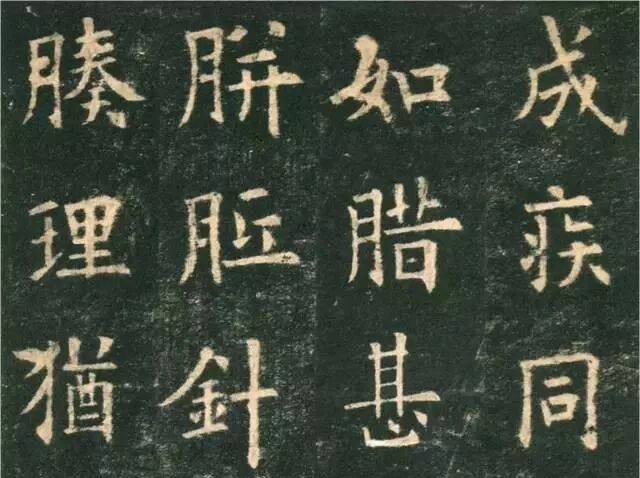 成疾同
如腊甚
胼胝針
腠理猶